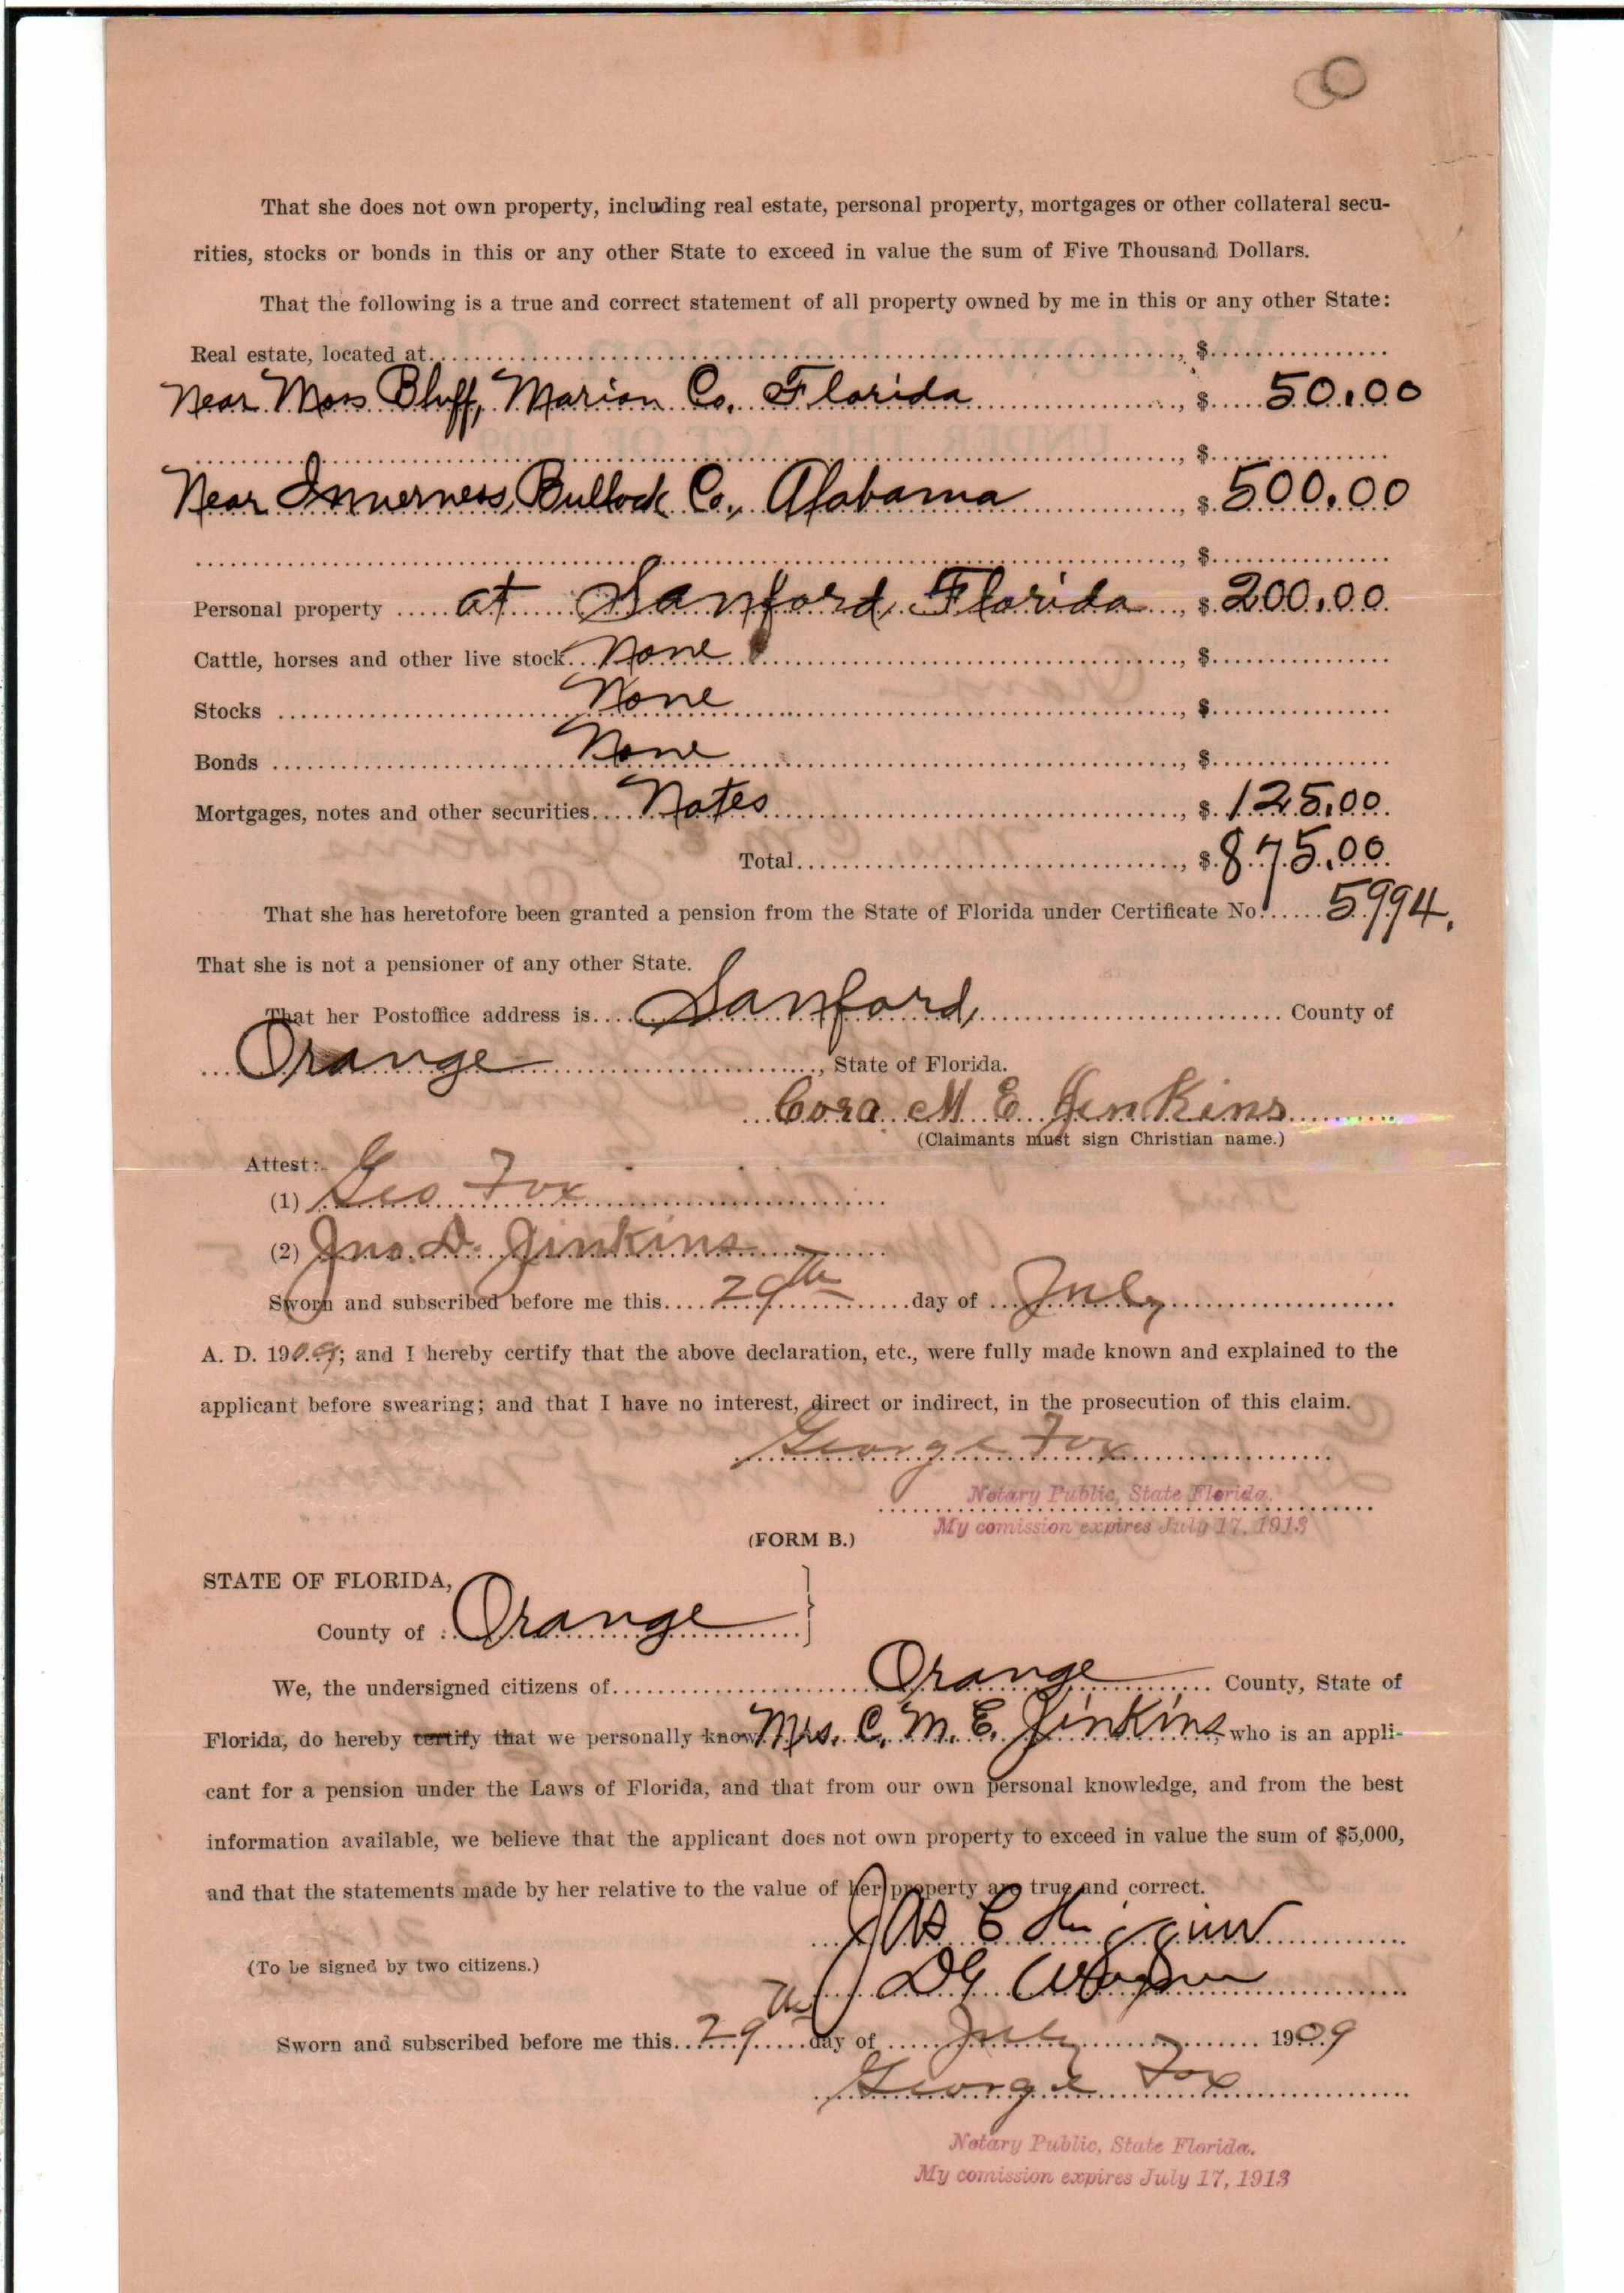 That she does not own property, including real estate, personal property, mortgages or other collateral secu-
rities, stocks or bonds in this or any other State to exceed in value the sum of Five Thousand Dollars.
That the following is a true and correct statement of all property owned by me in this or any other State:
Real estate, located at , $
Near Moss Bluff, Marion Co. Florida , $ 50.00
, $
Near Inverness, Bullock Co., Alabama , $ 500.00
, $
Personal property at Sanford, Florida , $ 200.00
Cattle, horses and other live stock None , $
Stocks None , $
Bonds None , $
Mortgages, notes and other securities Notes , $ 125.00
Total , $ 875.00
That she has heretofore been granted a pension from the State of Florida under Certificate No. 5994.
That she is not a pensioner of any other State.
That her Postoffice address is Sanford, County of
Orange , State of Florida.
Cora M E Jinkins
(Claimants must sign Christian name.)
Attest:
(1) Geo Fox
(2) Jno. D. Jinkins
Sworn and subscribed before me this 29th day of July
A. D. 1909; and I hereby certify that the above declaration, etc., were fully made known and explained to the
applicant before swearing; and that I have no interest, direct or indirect, in the prosecution of this claim.
George Fox
Notary Public, State Florida.
My comission expires July 17, 1913
(FORM B.)
STATE OF FLORIDA,
County of Orange
We, the undersigned citizens of Orange County, State of
Florida, do hereby certify that we personally know Mrs. C. M. E. Jinkins, who is an appli-
cant for a pension under the Laws of Florida, and that from our own personal knowledge, and from the best
information available, we believe that the applicant does not own property to exceed in value the sum of $5,000,
and that the statements made by her relative to the value of her property are true and correct.
C Higgins
(To be signed by two citizens.)
DG Wagner
Sworn and subscribed before me this 29th day of July 1909
George Fox
Notary Public, State Florida.
My comission expires July 17, 1913